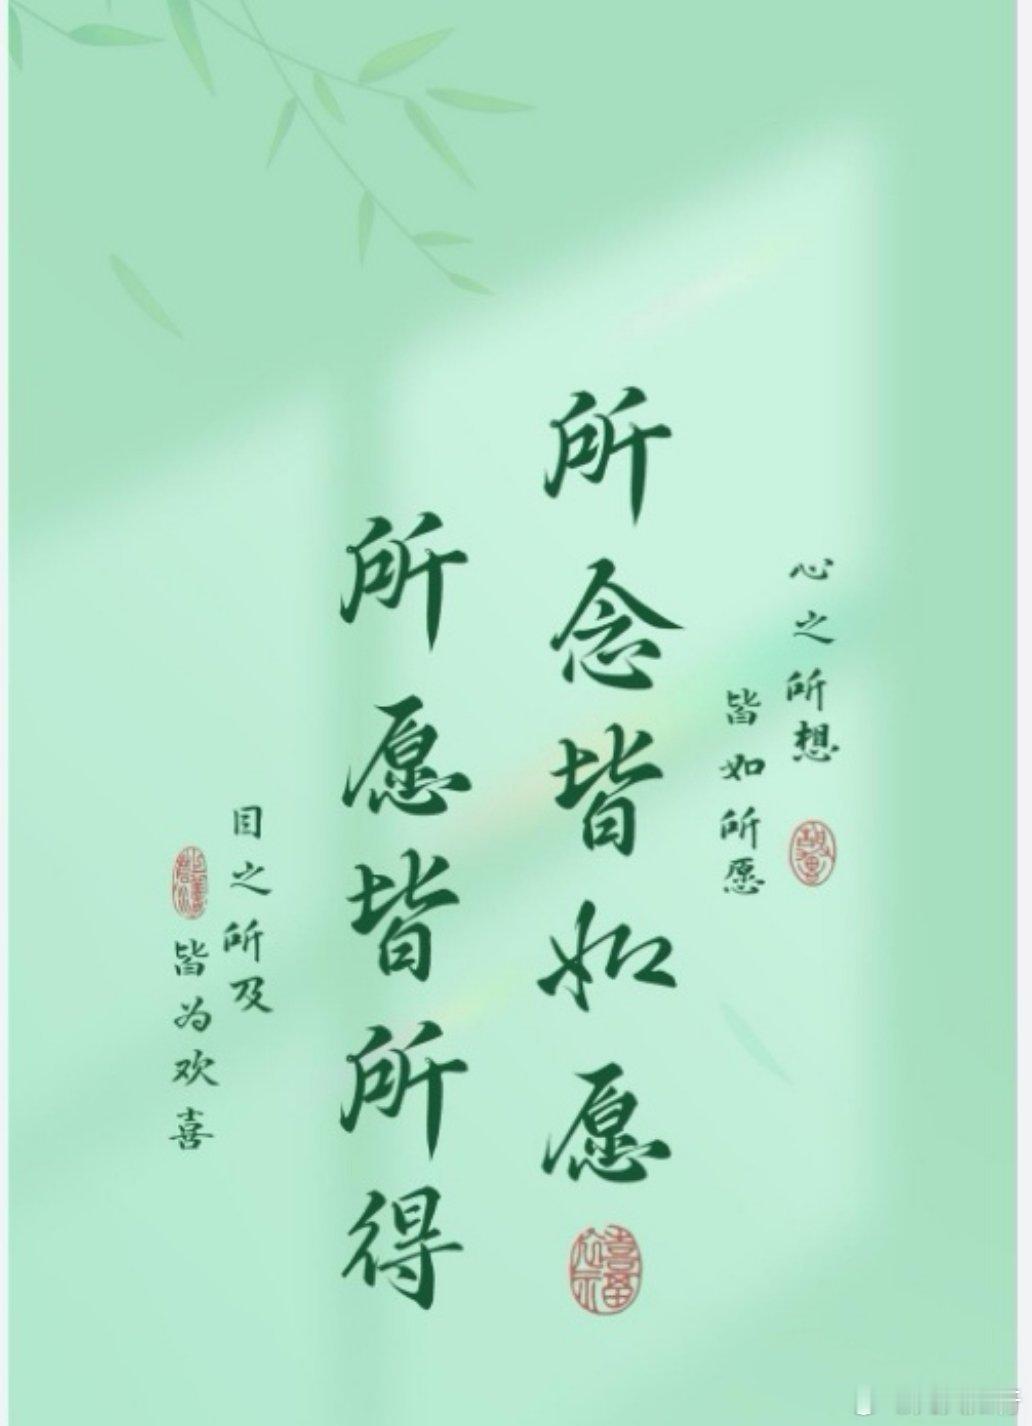 心之所想
皆如所愿
所念皆如愿
所愿皆所得
目之所及
皆为欢喜